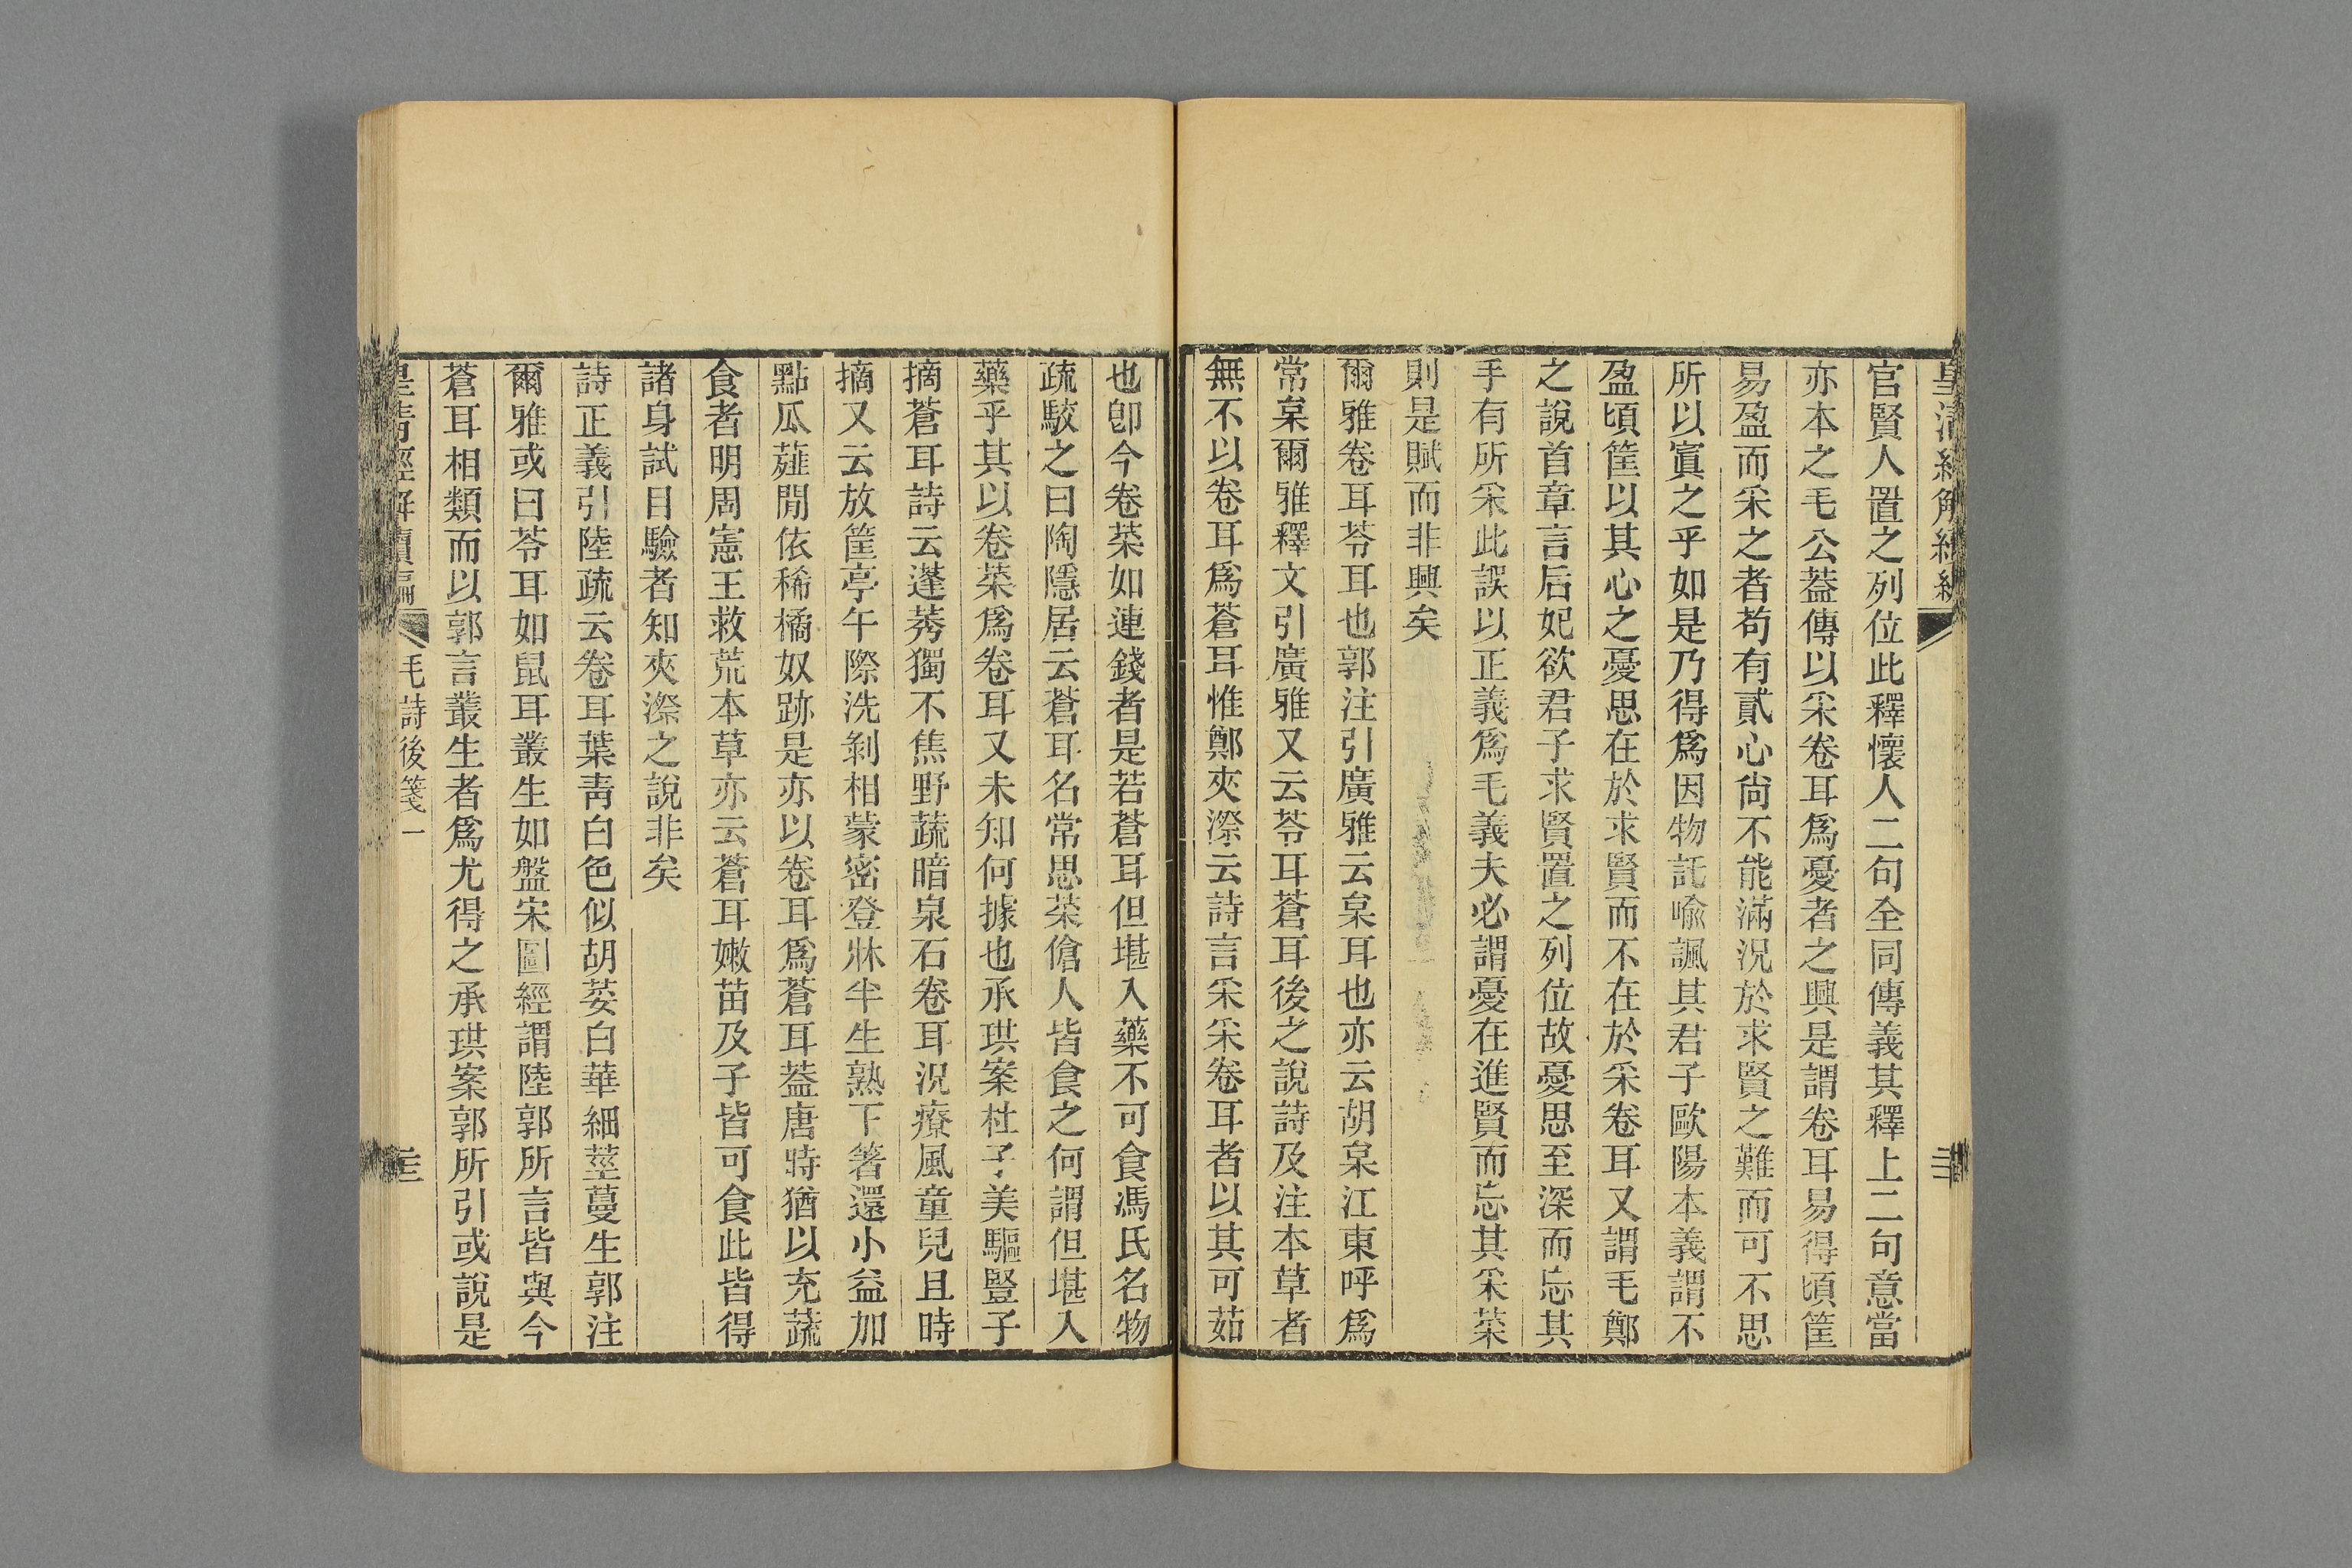 皇清經解續編
官賢人置之列位此釋懷人二句全同傳義其釋上二句意當
亦本之毛公葢傳以采卷耳爲憂者之興是謂卷耳易得頃筐
易盈而采之者苟有貳心尙不能滿況於求賢之難而可不思
所以寘之乎如是乃得爲因物託喻諷其君子歐陽本義謂不
盈頃筐以其心之憂思在於求賢而不在於采卷耳又謂毛鄭
之說首章言后妃欲君子求賢置之列位故憂思至深而忘其
手有所采此誤以正義爲毛義夫必謂憂在進賢而忘其采菜
則是賦而非興矣
爾雅卷耳苓耳也郭注引廣雅云枲耳也亦云胡枲江東呼爲
常枲爾雅釋文引廣雅又云苓耳蒼耳後之說詩及注本草者
無不以卷耳爲蒼耳惟鄭夾漈云詩言采采卷耳者以其可茹
也卽今卷菜如連錢者是若蒼耳但堪入藥不可食馮氏名物
疏駮之曰陶隱居云蒼耳名常思菜傖人皆食之何謂但堪入
藥乎其以卷菜爲卷耳又未知何據也承珙案杜子美驅豎子
摘蒼耳詩云蓬莠獨不焦野蔬暗泉石卷耳況療風童兒且時
摘又云放筐亭午際洗剝相蒙密登牀半生熟下箸還小益加
點瓜薤閒依稀橘奴跡是亦以卷耳爲蒼耳葢唐時猶以充蔬
食者明周憲王救荒本草亦云蒼耳嫩苗及子皆可食此皆得
諸身試目驗者知夾漈之說非矣
詩正義引陸疏云卷耳葉靑白色似胡荽白華細莖蔓生郭注
爾雅或曰苓耳如鼠耳叢生如盤宋圖經謂陸郭所言皆與今
蒼耳相類而以郭言叢生者爲尤得之承珙案郭所引或說是
皇清經解續編
毛詩後箋一